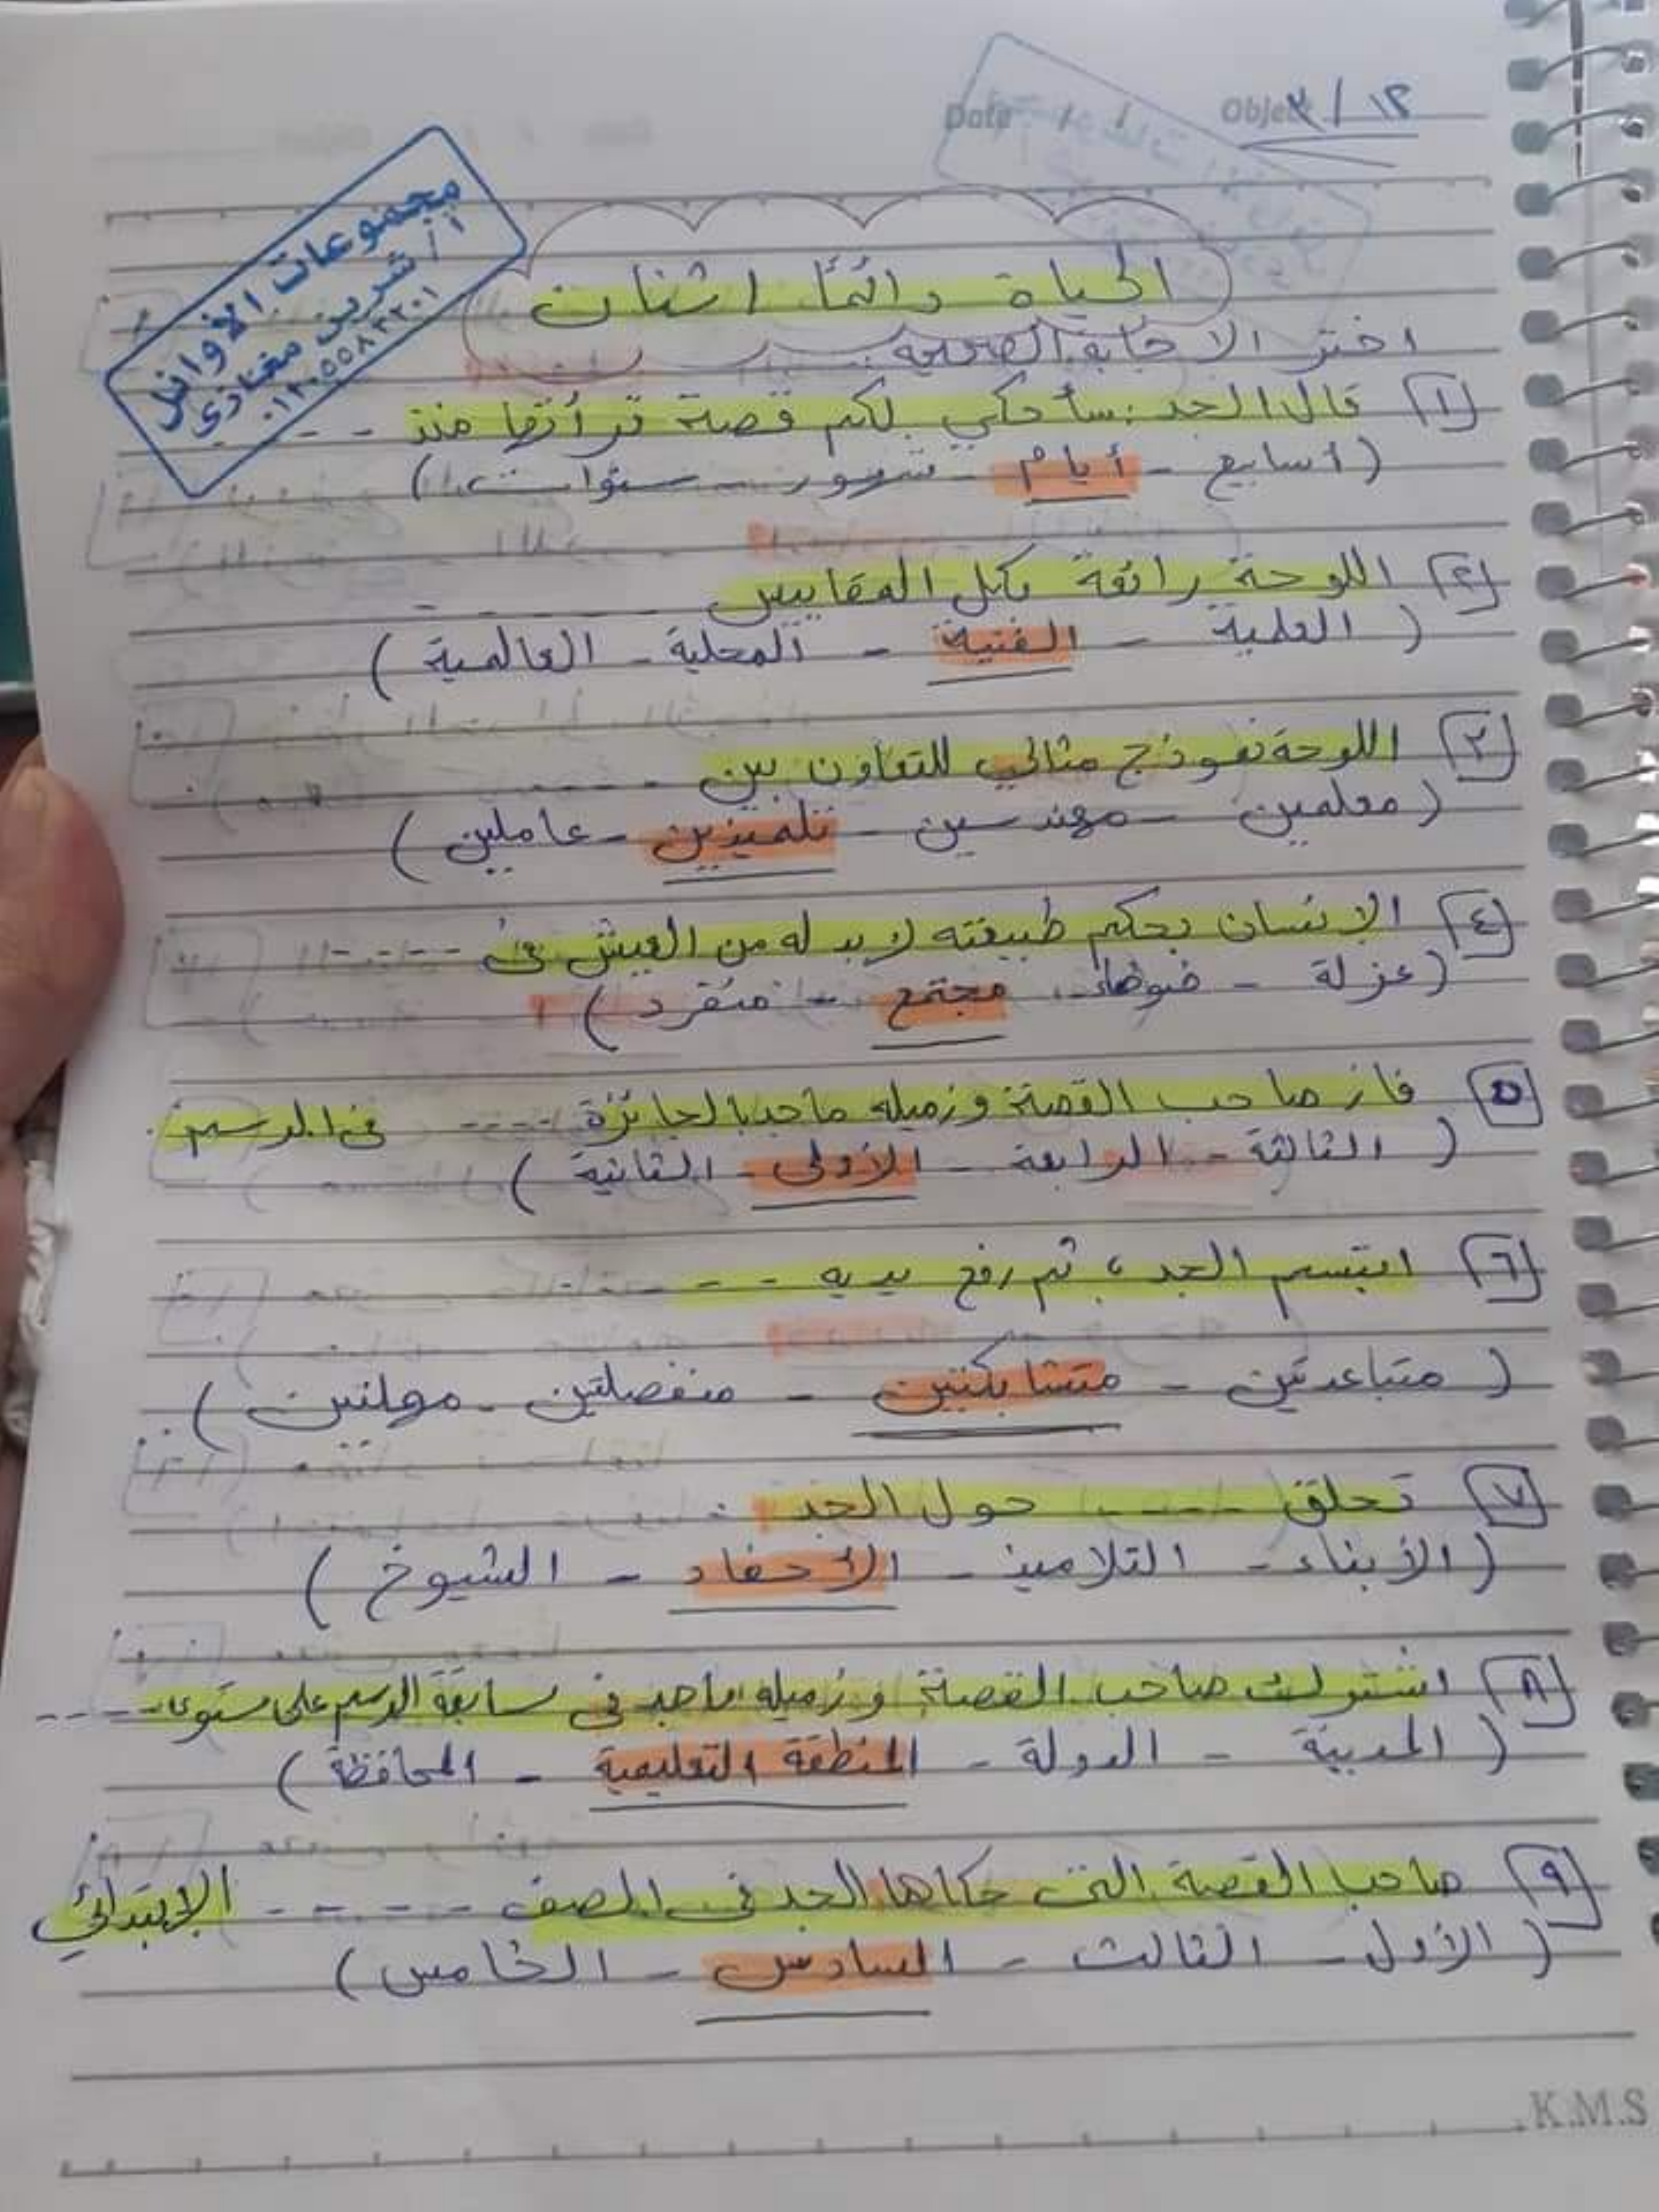 Date / / Object ١٢ / ٣
مجموعات الأوائل
أ / شرين مغازى
الحياة دائمًا اثنان
اختر الاجابة الصحيحة
١ قال الجد: سأحكي لكم قصة قرأتها منذ - - - -
(أسابيع - أيام - شهور - سنوات)
٢ اللوحة رائعة بكل المقاييس - - - - -
(العلمية - الفنية - المحلية - العالمية)
٣ اللوحة نموذج مثالي للتعاون بين - - - - -
(معلمين - مهندسين - تلميذين - عاملين)
٤ الإنسان بحكم طبيعته لابد له من العيش في - - - - -
(عزلة - ضوضاء - مجتمع - منفرد)
٥ فاز صاحب القصة وزميله ماجد بالجائزة - - - - في الرسم.
(الثالثة - الرابعة - الأولى - الثانية)
٦ ابتسم الجد ، ثم رفع يديه - - - - -
(متباعدتين - متشابكتين - منفصلتين - مهلتين)
٧ تحلق - - - - حول الجد
(الأبناء - التلاميذ - الأحفاد - الشيوخ)
٨ اشترك صاحب القصة وزميله ماجد في سابقة الرسم على مستوى - - - -
(المدينة - الدولة - المنطقة التعليمية - المحافظة)
٩ صاحبا القصة التى حكاها الجد في الصف - - - - - الابتدائي
(الأول - الثالث - السادس - الخامس)
K.M.S